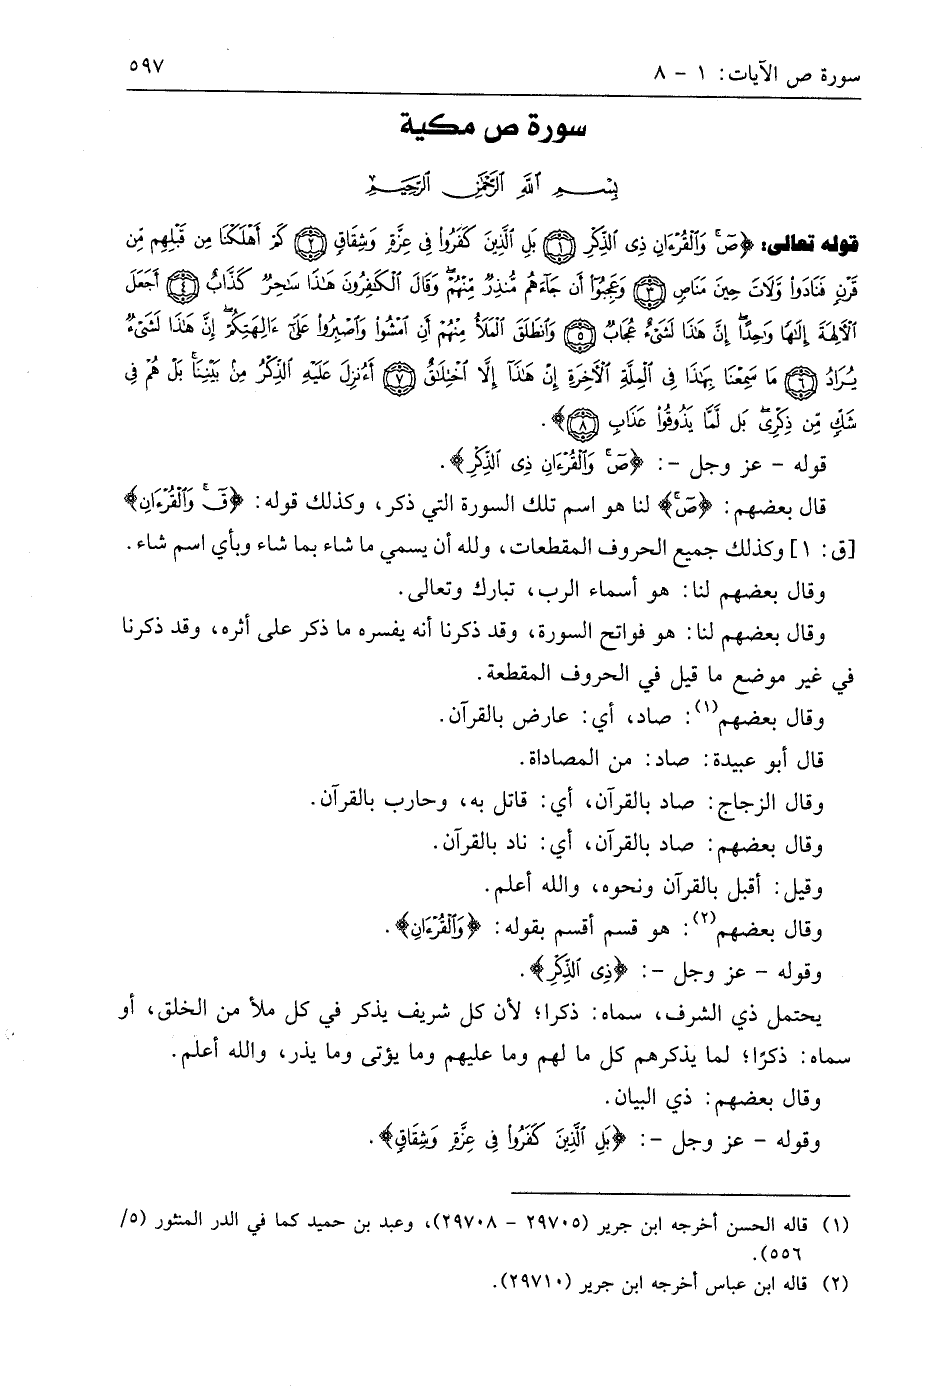 سورة ص الآيات: ١ - ٨
٥٩٧
سورة ص مكية
بِسْمِ اللَّهِ الرَّحْمَٰنِ الرَّحِيمِ
قوله تعالى: ﴿صٓ وَٱلْقُرْءَانِ ذِى ٱلذِّكْرِ ﴿١﴾ بَلِ ٱلَّذِينَ كَفَرُوا۟ فِى عِزَّةٍ وَشِقَاقٍ ﴿٢﴾ كَمْ أَهْلَكْنَا مِن قَبْلِهِم مِّن
قَرْنٍ فَنَادَوا۟ وَّلَاتَ حِينَ مَنَاصٍ ﴿٣﴾ وَعَجِبُوٓا۟ أَن جَآءَهُم مُّنذِرٌ مِّنْهُمْ ۖ وَقَالَ ٱلْكَٰفِرُونَ هَٰذَا سَٰحِرٌ كَذَّابٌ ﴿٤﴾ أَجَعَلَ
ٱلْءَالِهَةَ إِلَٰهًا وَٰحِدًا ۖ إِنَّ هَٰذَا لَشَىْءٌ عُجَابٌ ﴿٥﴾ وَٱنطَلَقَ ٱلْمَلَأُ مِنْهُمْ أَنِ ٱمْشُوا۟ وَٱصْبِرُوا۟ عَلَىٰٓ ءَالِهَتِكُمْ ۖ إِنَّ هَٰذَا لَشَىْءٌ
يُرَادُ ﴿٦﴾ مَا سَمِعْنَا بِهَٰذَا فِى ٱلْمِلَّةِ ٱلْءَاخِرَةِ إِنْ هَٰذَآ إِلَّا ٱخْتِلَٰقٌ ﴿٧﴾ أَءُنزِلَ عَلَيْهِ ٱلذِّكْرُ مِنۢ بَيْنِنَا ۚ بَلْ هُمْ فِى
شَكٍّ مِّن ذِكْرِى ۖ بَل لَّمَّا يَذُوقُوا۟ عَذَابِ ﴿٨﴾﴾.
قوله - عز وجل -: ﴿صٓ ۚ وَٱلْقُرْءَانِ ذِى ٱلذِّكْرِ﴾.
قال بعضهم: ﴿صٓ ۚ﴾ لنا هو اسم تلك السورة التي ذكر، وكذلك قوله: ﴿قٓ ۚ وَٱلْقُرْءَانِ﴾
[ق: ١] وكذلك جميع الحروف المقطعات، ولله أن يسمي ما شاء بما شاء وبأي اسم شاء.
وقال بعضهم لنا: هو أسماء الرب، تبارك وتعالى.
وقال بعضهم لنا: هو فواتح السورة، وقد ذكرنا أنه يفسره ما ذكر على أثره، وقد ذكرنا
في غير موضع ما قيل في الحروف المقطعة.
وقال بعضهم(١): صاد، أي: عارض بالقرآن.
قال أبو عبيدة: صاد: من المصاداة.
وقال الزجاج: صاد بالقرآن، أي: قاتل به، وحارب بالقرآن.
وقال بعضهم: صاد بالقرآن، أي: ناد بالقرآن.
وقيل: أقبل بالقرآن ونحوه، والله أعلم.
وقال بعضهم(٢): هو قسم أقسم بقوله: ﴿وَٱلْقُرْءَانِ﴾.
وقوله - عز وجل -: ﴿ذِى ٱلذِّكْرِ﴾.
يحتمل ذي الشرف، سماه: ذكرا؛ لأن كل شريف يذكر في كل ملأ من الخلق، أو
سماه: ذكرًا؛ لما يذكرهم كل ما لهم وما عليهم وما يؤتى وما يذر، والله أعلم.
وقال بعضهم: ذي البيان.
وقوله - عز وجل -: ﴿بَلِ ٱلَّذِينَ كَفَرُوا۟ فِى عِزَّةٍ وَشِقَاقٍ﴾.
(١) قاله الحسن أخرجه ابن جرير (٢٩٧٠٥ - ٢٩٧٠٨)، وعبد بن حميد كما في الدر المنثور (٥/
٥٥٦).
(٢) قاله ابن عباس أخرجه ابن جرير (٢٩٧١٠).